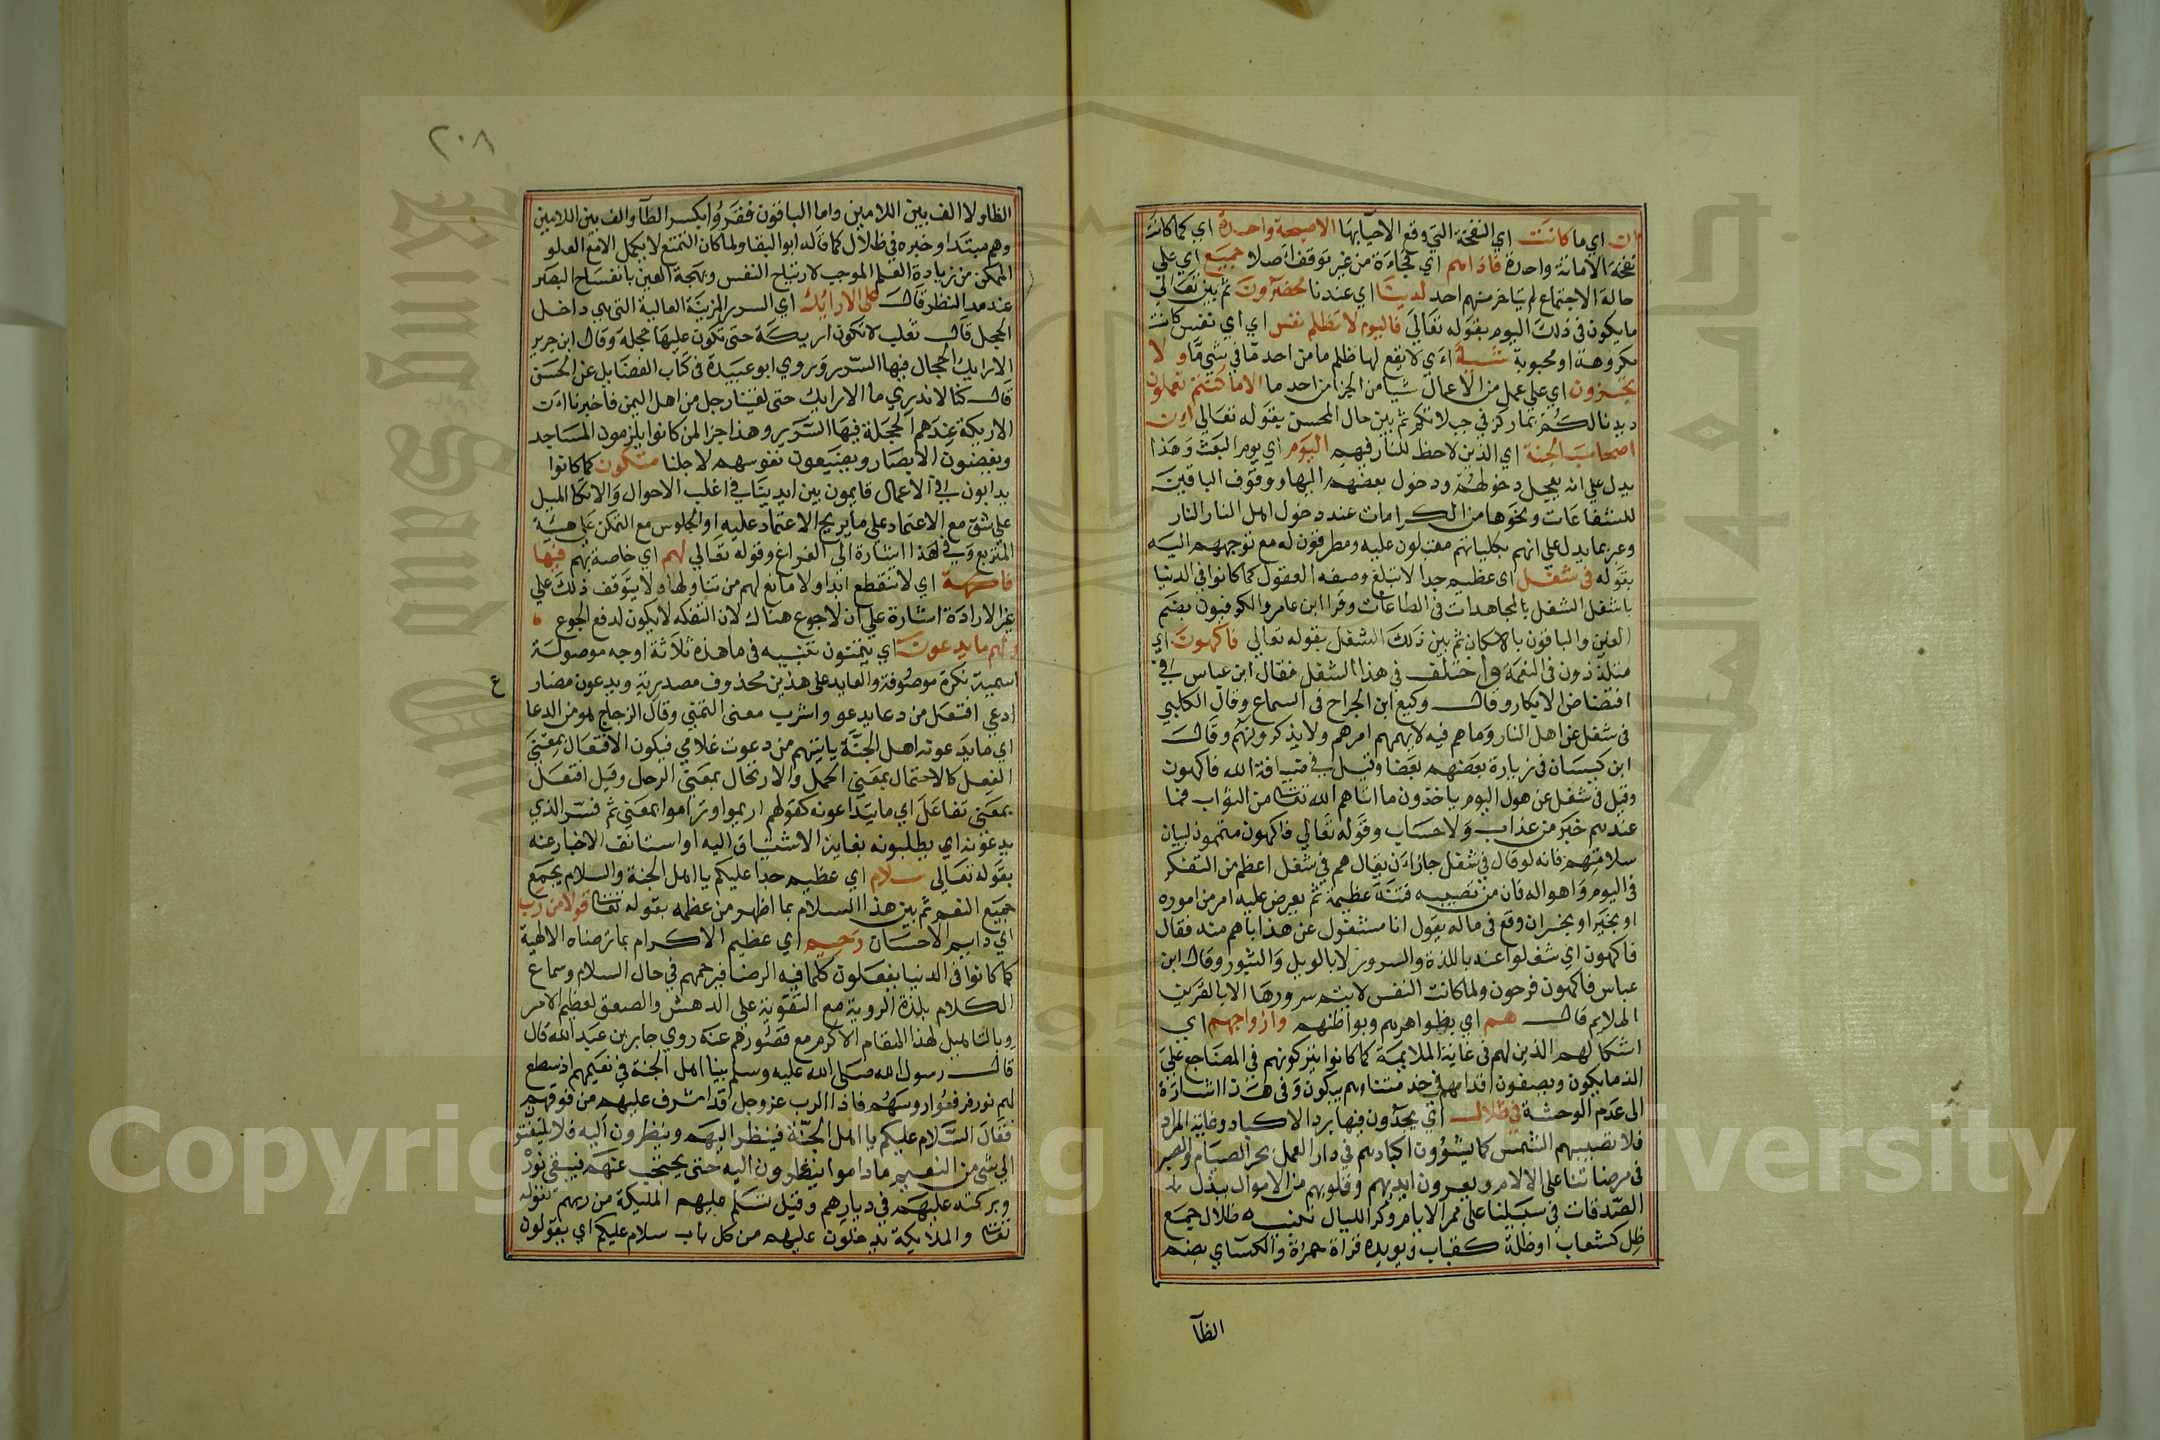 ان اي ما كانت اي النفخة التي وقع الاحيا بها الا صيحة واحدة اي كما كانت
نفخة الاماتة واحدة فاذا هم اي فجاءة من غير توقف اصلا جميع اي على
حالة الاجتماع لم يتاخر منهم احد لدينا اي عندنا محضرون ثم بين تعالي
ما يكون في ذلك اليوم بقوله تعالي فاليوم لا تظلم نفس اي اي نفس كانت
مكروهة او محبوبة شيئا اي لا يقع لها ظلم ما من احد ما في شي ما ولا
تجزون اي على عمل من الاعمال شيا من الجزا من احد ما الا ما كنتم تعملون
ديدنا لكم بما ركز في جبلاتكم ثم بين حال المحسن بقوله تعالي ان
اصحاب الجنة اي الذين لاحظ للنار فيهم اليوم اي يوم البعث وهذا
يدل على انه يعجل دخولهم ودخول بعضهم اليها ووقوف الباقين
للشفاعات ونحوها من الكرامات عند دخول اهل النار النار
وعبر بما يدل علي انهم بكلياتهم مقبلون عليه ومطرقون له مع توجههم اليه
بقوله في شغل اي عظيم جدا لا تبلغ وصفه العقول كما كانوا في الدنيا
باشغل الشغل بالمجاهدات في الطاعات وقرا ابن عامر والكوفيون بضم
الغين والباقون بالاسكان ثم بين ذلك الشغل بقوله تعالي فاكهون اي
متلذذون في النعمة واختلف في هذا الشغل فقال ابن عباس في
افتضاض الابكار وقال وكيع ابن الجراح في السماع وقال الكلبي
في شغل عن اهل النار وما هم فيه لا يهمهم امرهم ولا يذكرونهم وقال
ابن كيسان في زيارة بعضهم بعضا وقيل في ضيافة الله فاكهون
وقيل في شغل عن هول اليوم ياخذون ما اتاهم الله تعالى من الثواب فما
عندهم خبر من عذاب ولا حساب وقوله تعالي فاكهون متمم لبيان
سلامتهم فانه لو قال في شغل جاز ان يقال هم في شغل اعظم من التفكر
في اليوم واهواله فان من تصيبه فتنة عظيمة ثم يعرض عليه امر من اموره
او يخبر او بخسران وقع في ماله يقول انا مشغول عن هذا باهم منه فقال
فاكهون اي شغلوا عنه باللذة والسرور لا بالويل والثبور وقال ابن
عباس فاكهون فرحون ولما كانت النفس لا يتم سرورها الا بالقرين
الملايم قال هم اي بظواهرهم وبواطنهم وازواجهم اي
اشكالهم الذين لهم في غاية الملايمة كما كانوا يتركونهم في المضاجع على
الذ ما يكون ويصفون اقدامهم في خدمتنا وهم يبكون وفي هذا اشارة
الى عدم الوحشة في ظلال اي يجدون فيها برد الاكباد وغاية المراد
فلا تصيبهم الشمس كما يشوون اكبادهم في دار العمل بحر الصيام والصبر
في مرضاتنا على الالام ويعرون ايديهم وقلوبهم من الاموال ببذل
الصدقات في سبيلنا على ممر الايام وكر الليال تنبيه ظلال جمع
ظل كشعاب او ظلة كقباب ويويده قراة حمزة والكساي بضم
الظا
٢٠٨
الظا ولا الف بين اللامين واما الباقون فقروا بكسر الظا والف بين اللامين
وهم مبتدا وخبره في ظلال كما قاله ابو البقا ولما كان التمتع لا يكمل الا مع العلو
الممكن من زيادة العلم الموجب لارتياح النفس وبهجة العين بانفساح البصر
عند مد النظر قال على الارايك اي السرر المزينة العالية التي هي داخل
الحجل قال ثعلب لا تكون اريكة حتى تكون عليها حجلة وقال ابن جرير
الارايك الحجال فيها السرر وروي ابو عبيدة في كتاب الفضايل عن الحسن
قال كنا لا ندري ما الارايك حتى لقينا رجل من اهل اليمن فاخبرنا ان
الاريكة عندهم الحجلة فيها السرير وهذا جزا لمن كانوا يلزمون المساجد
ويغضون الابصار ويضيعون نفوسهم لاجلنا متكون كما كانوا
يدابون في الاعمال قايمون بين ايدينا في اغلب الاحوال والاتكا الميل
على شق مع الاعتماد على ما يريح الاعتماد عليه او الجلوس مع التمكن على هيئة
المتربع وفي هذا اشارة الي الفراغ وقوله تعالي لهم اي خاصة بهم فيها
فاكهة اي لا تنقطع ابدا ولا مانع لهم من تناولها ولا يتوقف ذلك علي
غير الارادة اشارة علي ان لا جوع هناك لان التفكه لا يكون لدفع الجوع
ولهم ما يدعون اي يتمنون تنبيه في ما هذه ثلاثة اوجه موصولة
اسمية نكرة موصوفة والعايد على هذين محذوف مصدرية ويدعون مضار
ع
ادعي افتعل من دعا يدعو واشرب معنى التمني وقال الزجاج هو من الدعا
اي ما يدعونه اهل الجنة ياتيهم من دعوت غلامي فيكون الافتعال بمعني
الفعل كالاحتمال بمعني الحمل والارتحال بمعني الرحل وقيل افتعل
بمعنى تفاعل اي ما يتداعونه كقولهم ارتموا وتراموا بمعنى ثم فسر الذي
يدعونه اي يطلبونه بغاية الاشتياق اليه او استانف الاخبار عنه
بقوله تعالي سلام اي عظيم جدا عليكم يا اهل الجنة والسلام يجمع
جميع النعم ثم بين هذا السلام بما اظهر من عظمه بقوله تعالى قولا من رب
اي دايم الاحسان رحيم اي عظيم الاكرام بما ترضاه الالهية
كما كانوا في الدنيا يفعلون كلما فيه الرضا فيرحمهم في حال السلام وسماع
الكلام بلذة الروية مع التقوية على الدهش والصعق لعظيم الامر
وبالتاهيل لهذا المقام الاكرم مع قصورهم عنه روي جابر بن عبد الله قال
قال رسول الله صلى الله عليه وسلم بينا اهل الجنة في نعيمهم اذ سطع
لهم نور فرفعوا روسهم فاذا الرب عز وجل قد اشرف عليهم من فوقهم
فقال السلام عليكم يا اهل الجنة فينظر اليهم وينظرون اليه فلا يلتفتو
الي شي من النعيم ما داموا ينظرون اليه حتى يحتجب عنهم فيبقى نوره
وبركته عليهم في ديارهم وقيل تسلم عليهم المليكة من ربهم لقوله
تعالى والملايكة يدخلون عليهم من كل باب سلام عليكم اي يقولون
King Saud University
جامعة الملك سعود
1957
Copyright © King Saud University